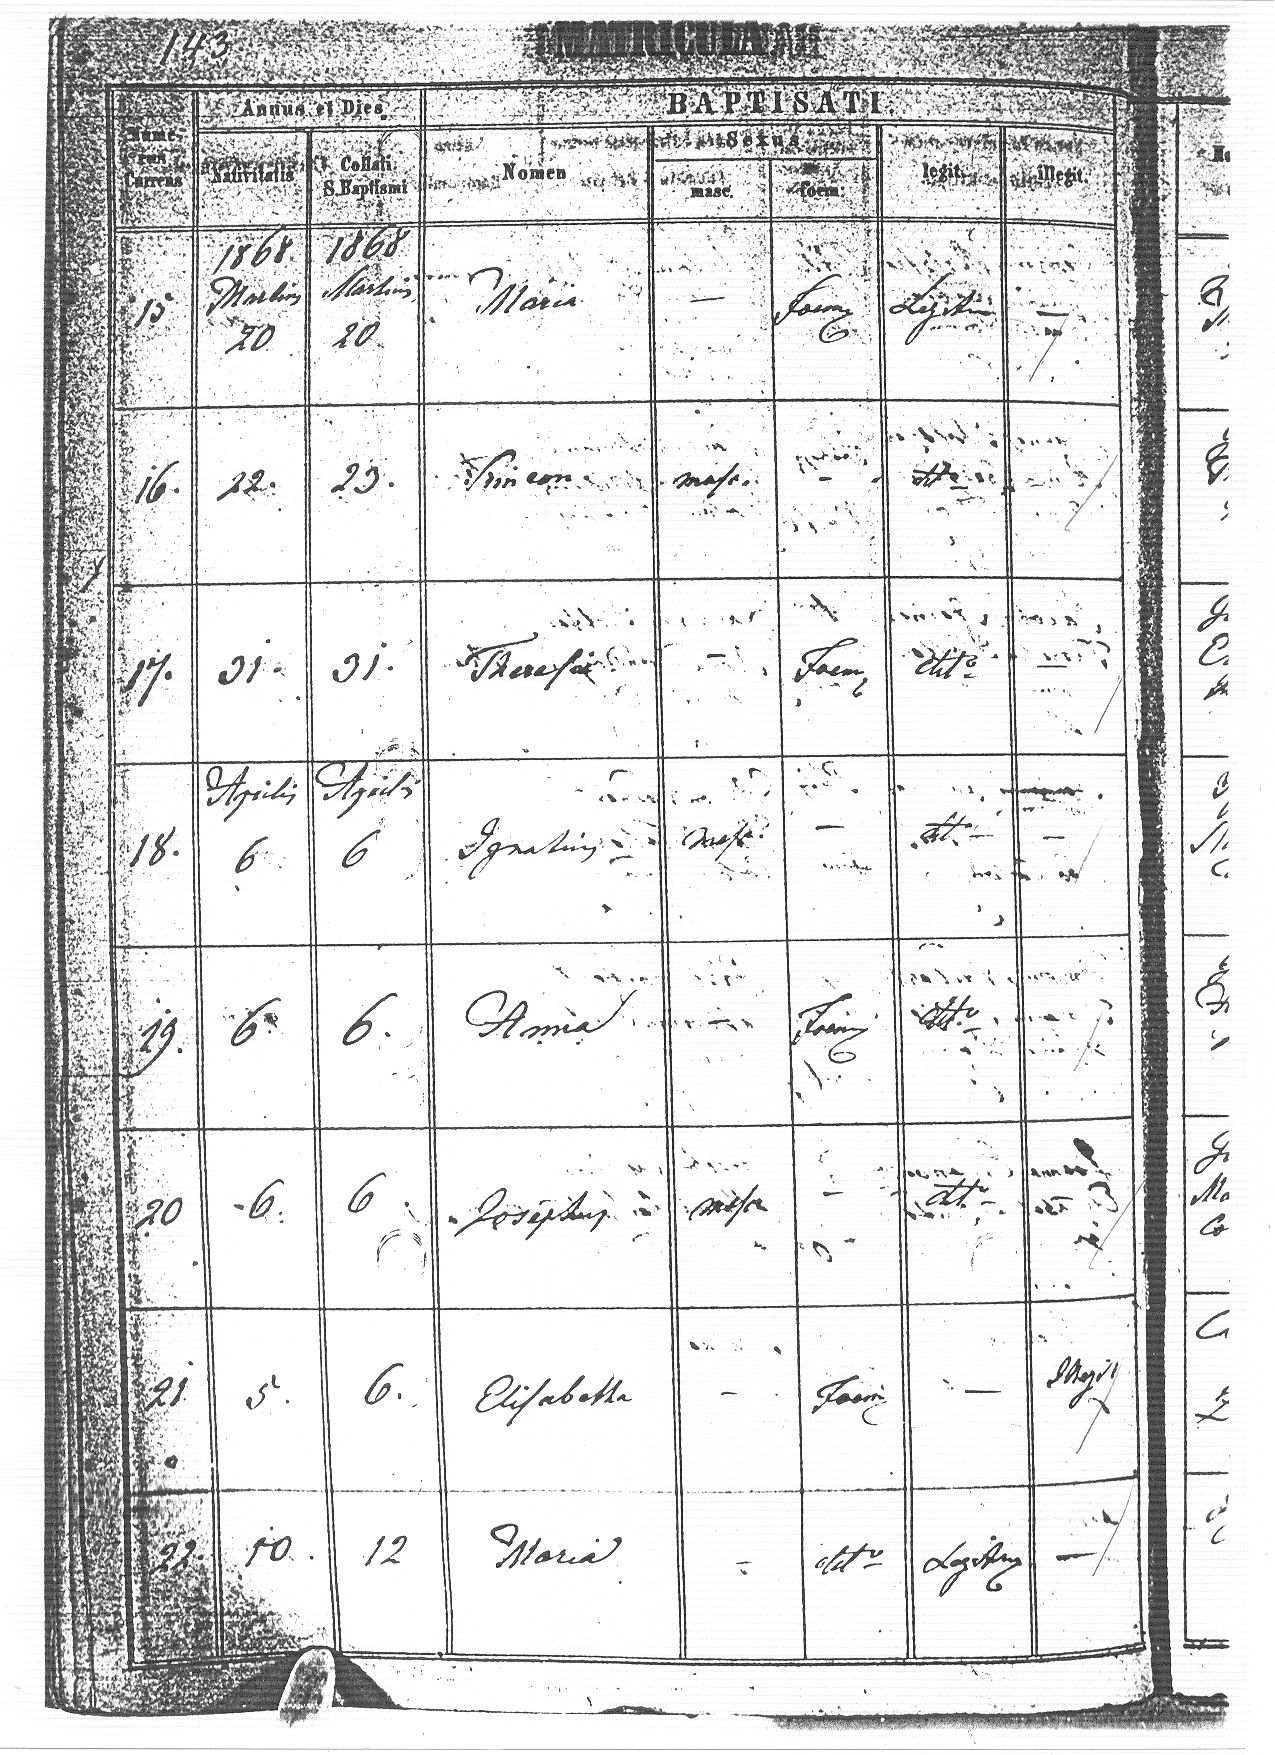 143
MATRICULA
Annus et Dies
BAPTISATI.
Nume-
rus
Currens
Nativitatis
Collati
S. Baptismi
Nomen
Sexus
masc.
foem.
legit.
illegit.
1868 1868
15 Martius Martius Maria — Foem Legitim —
20 20
16. 22. 23. Simeon masc. - ditto
17. 31. 31. Theresia — Foem ditto —
Aprilis Aprilis
18. 6 6 Ignatius masc. — ditto —
19. 6 6. Anna — Foem ditto
20 6. 6. Josephus masc — ditto
21 5. 6. Elisabetha - Foem — Illegit
22. 10. 12 Maria - ditto Legitim —